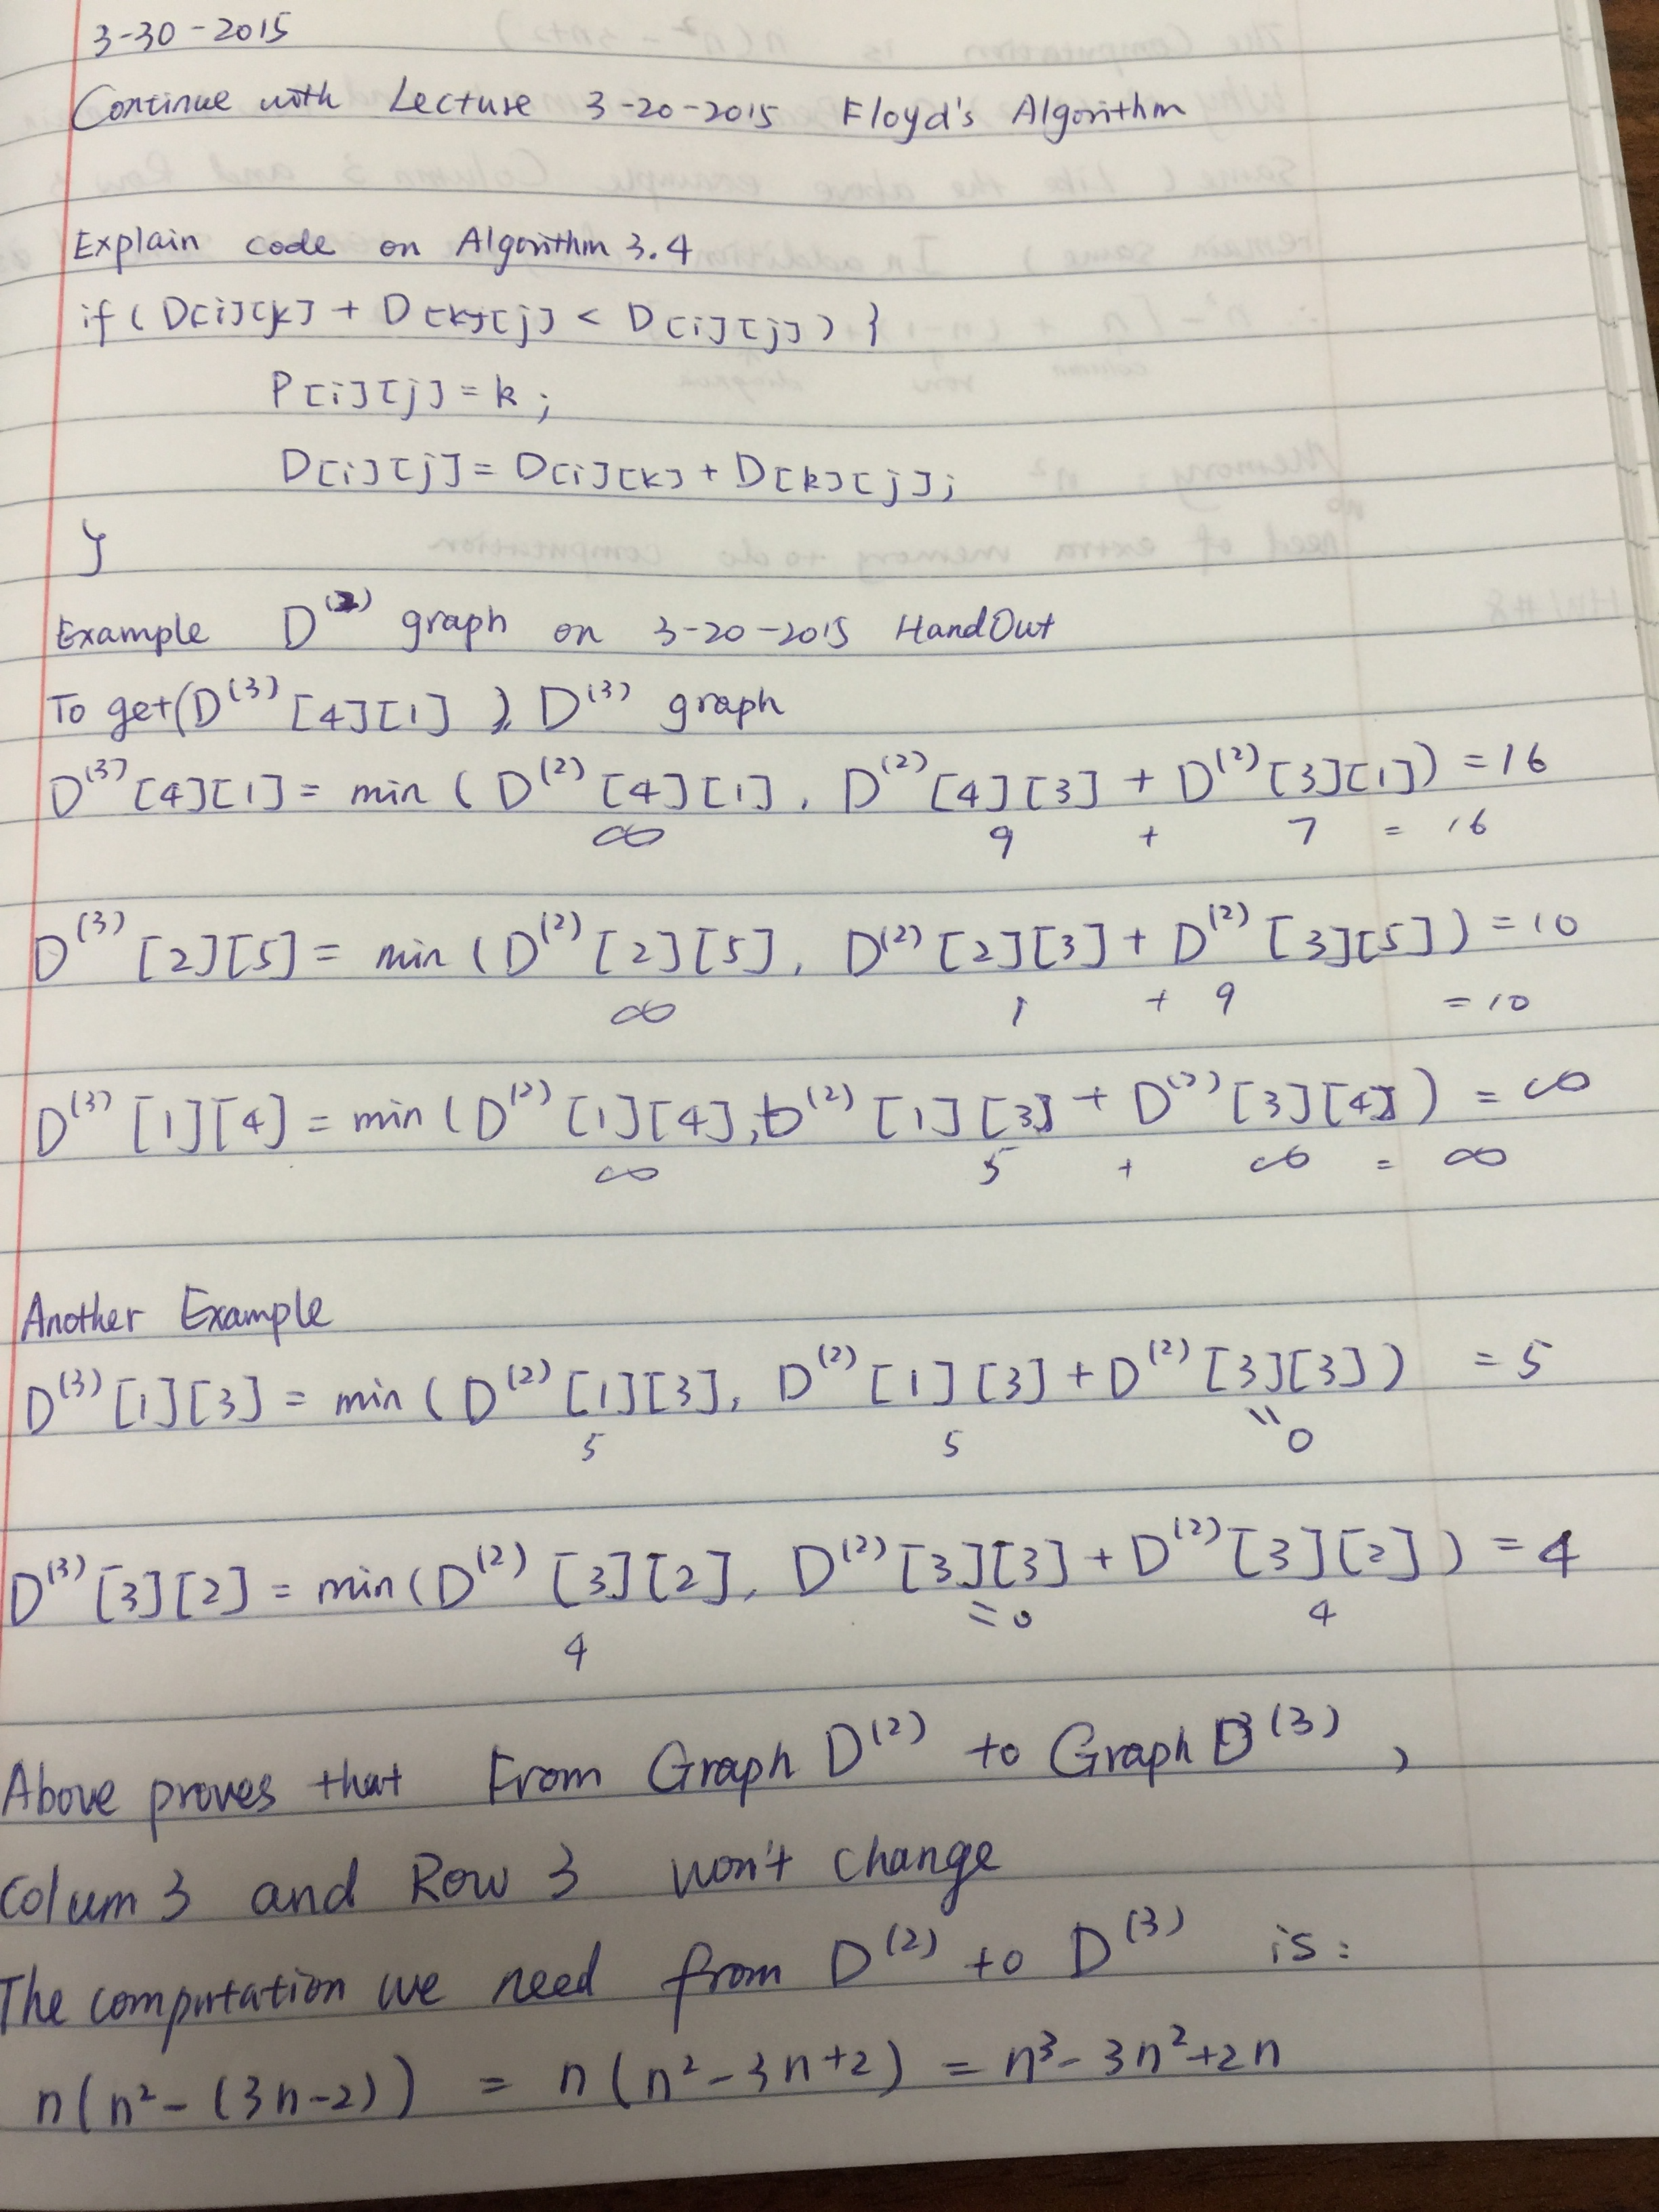 3-30-2015
Continue with Lecture 3-20-2015 Floyd's Algorithm
Explain code on Algorithm 3.4
if ( D[i][k] + D[k][j] < D[i][j] ) {
P[i][j] = k ;
D[i][j] = D[i][k] + D[k][j] ;
}
Example D⁽²⁾ graph on 3-20-2015 HandOut
To get (D⁽³⁾ [4][1] ), D⁽³⁾ graph
D⁽³⁾ [4][1] = min ( D⁽²⁾ [4][1], D⁽²⁾ [4][3] + D⁽²⁾ [3][1] ) = 16
∞ 9 + 7 = 16
D⁽³⁾ [2][5] = min ( D⁽²⁾ [2][5], D⁽²⁾ [2][3] + D⁽²⁾ [3][5] ) = 10
∞ 1 + 9 = 10
D⁽³⁾ [1][4] = min ( D⁽²⁾ [1][4], D⁽²⁾ [1][3] + D⁽²⁾ [3][4] ) = ∞
∞ 5 + ∞ = ∞
Another Example
D⁽³⁾ [1][3] = min ( D⁽²⁾ [1][3], D⁽²⁾ [1][3] + D⁽²⁾ [3][3] ) = 5
5 5 = 0
D⁽³⁾ [3][2] = min ( D⁽²⁾ [3][2], D⁽²⁾ [3][3] + D⁽²⁾ [3][2] ) = 4
4 = 0 4
Above proves that From Graph D⁽²⁾ to Graph D⁽³⁾ ,
Colum 3 and Row 3 won't change
The computation we need from D⁽²⁾ to D⁽³⁾ is :
n(n² - (3n-2)) = n(n² - 3n + 2) = n³ - 3n² + 2n